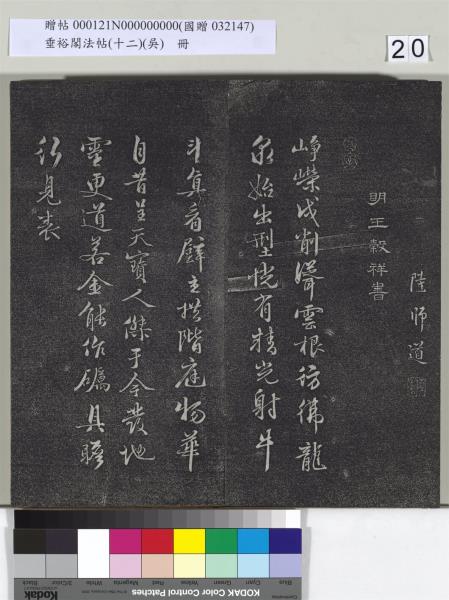 贈帖 000121N000000000(國贈 032147)
垂裕閣法帖(十二)(吳) 冊
20
陸師道
明王穀祥書
崢嶸戌削聳雲根彷彿龍
泉始出型恍有精光射牛
斗真看壁立拱階庭物華
自昔呈天寶人傑于今發地
靈更道若金能作礪具瞻
行見
Blue
Cyan
Green
Yellow
Red
Magenta
White
3/Color
Black
KODAK Color Control Patches
Kodak